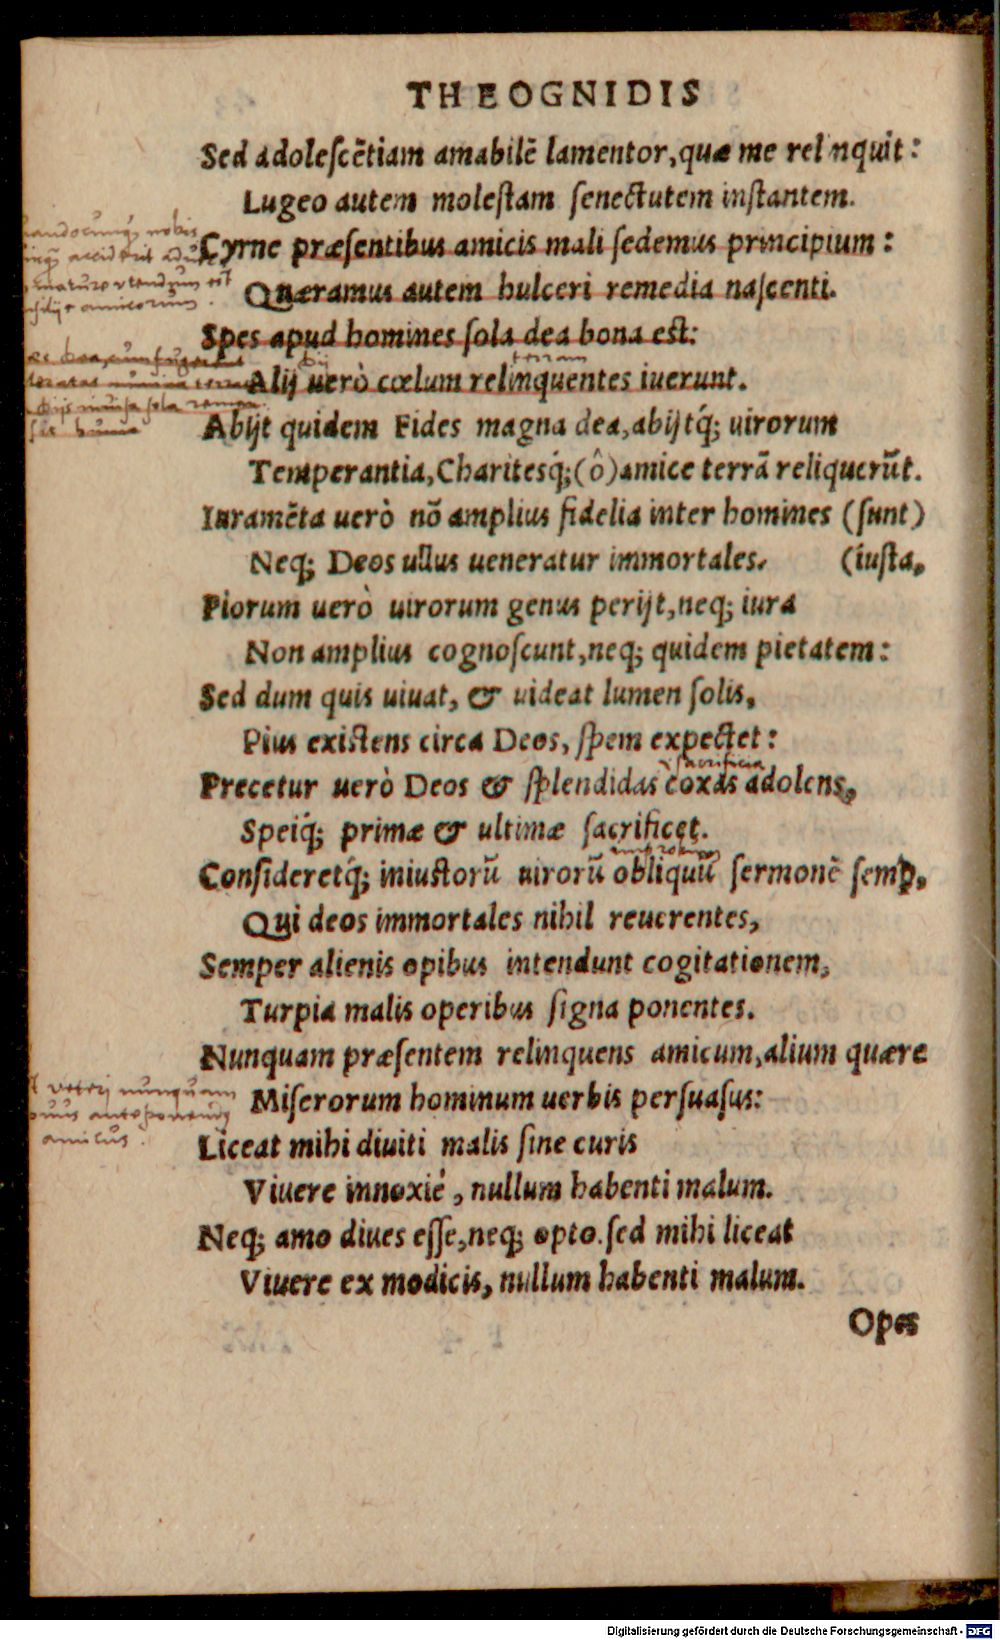 THEOGNIDIS
Sed adoleſcẽtiam amabilẽ lamentor, quæ me relinquit:
Lugeo autem moleſtam ſenectutem inſtantem.
Cyrne præſentibus amicis mali ſedemus principium:
Quæramus autem hulceri remedia naſcenti.
Spes apud homines ſola dea bona eſt:
dij terram
Alij uerò cœlum relinquentes iuerunt.
Abijt quidem Fides magna dea, abijtq́; uirorum
Temperantia, Charitesq́; (ô) amice terrã reliquerũt.
Iuramẽta uerò nõ amplius fidelia inter homines (ſunt)
Neq; Deos ullus ueneratur immortales. (iuſta,
Piorum uerò uirorum genus perijt, neq; iura
Non amplius cognoſcunt, neq; quidem pietatem:
Sed dum quis uiuat, & uideat lumen ſolis,
Pius exiſtens circa Deos, ſpem expectet:
ſacrificia
Precetur uerò Deos & ſplendidas coxas adolens,
Speiq́; primæ & ultimæ ſacrificet.
Conſideretq́; iniuſtorũ uirorũ obliquũ ſermonẽ ſemꝑ,
Qui deos immortales nihil reuerentes,
Semper alienis opibus intendunt cogitationem,
Turpia malis operibus ſigna ponentes.
Nunquam præſentem relinquens amicum, alium quære
Miſerorum hominum uerbis perſuaſus:
veteri nunquam
anteponendus
amicus.
Liceat mihi diuiti malis ſine curis
Viuere innoxiè, nullum habenti malum.
Neq; amo diues eſſe, neq; opto. ſed mihi liceat
Viuere ex modicis, nullum habenti malum.
Opes
Digitalisierung gefördert durch die Deutsche Forschungsgemeinschaft - DFG